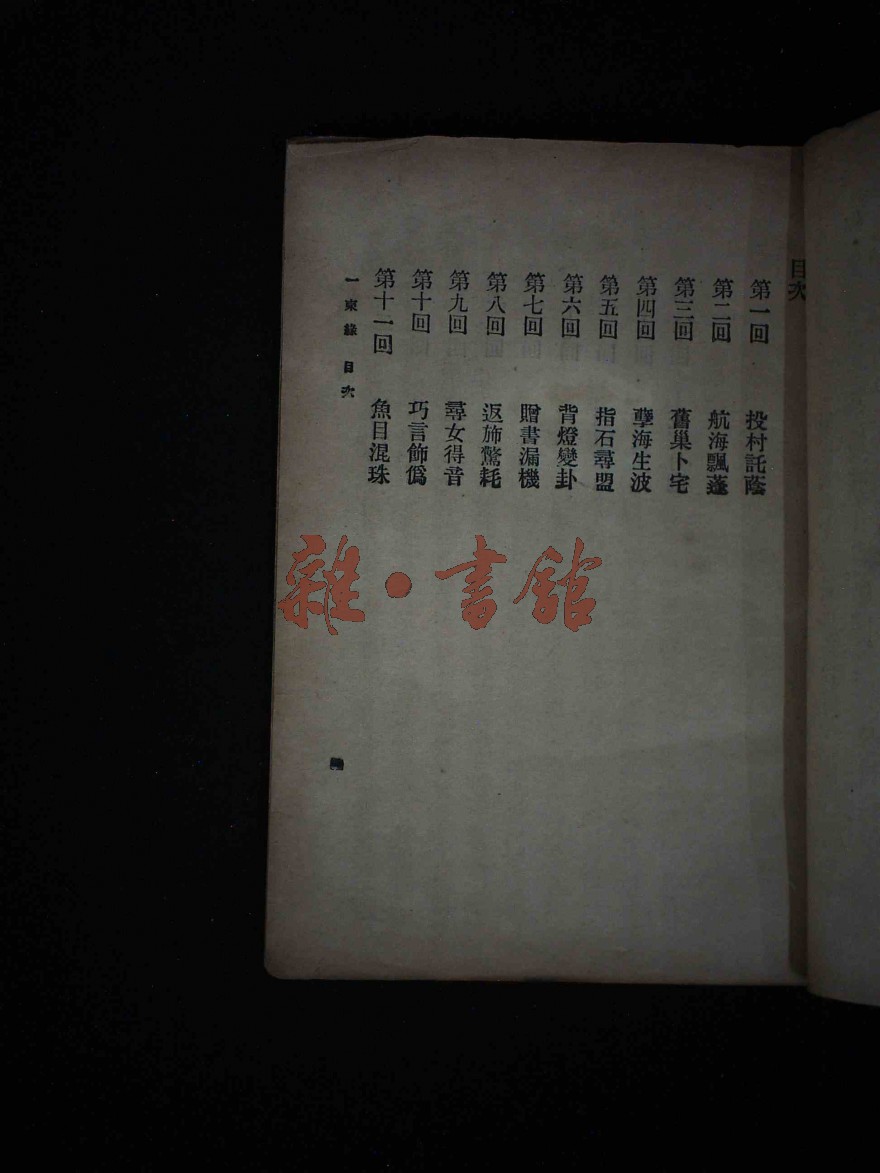 目次
第一回 投村託蔭
第二回 航海飄蓬
第三回 舊巢卜宅
第四回 孽海生波
第五回 指石尋盟
第六回 背燈變卦
第七回 贈書漏機
第八回 返斾驚耗
第九回 尋女得音
第十回 巧言飾僞
第十一回 魚目混珠
一束緣 目次
雜·書館